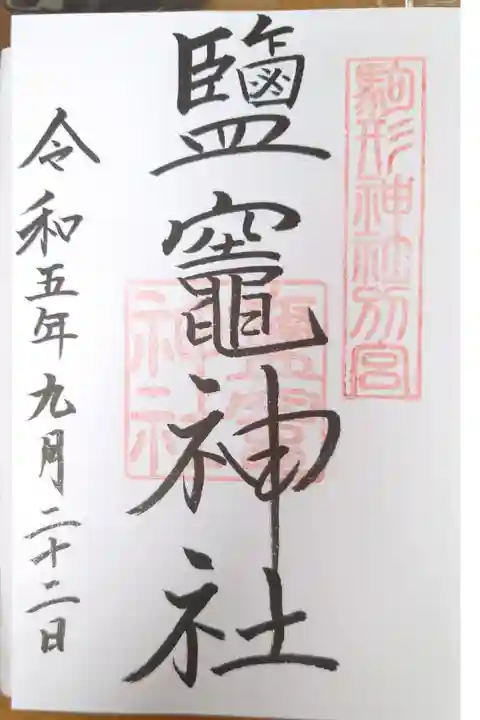 駒形神社別宮
鹽竈神社
鹽竈神社
令和五年九月二十二日